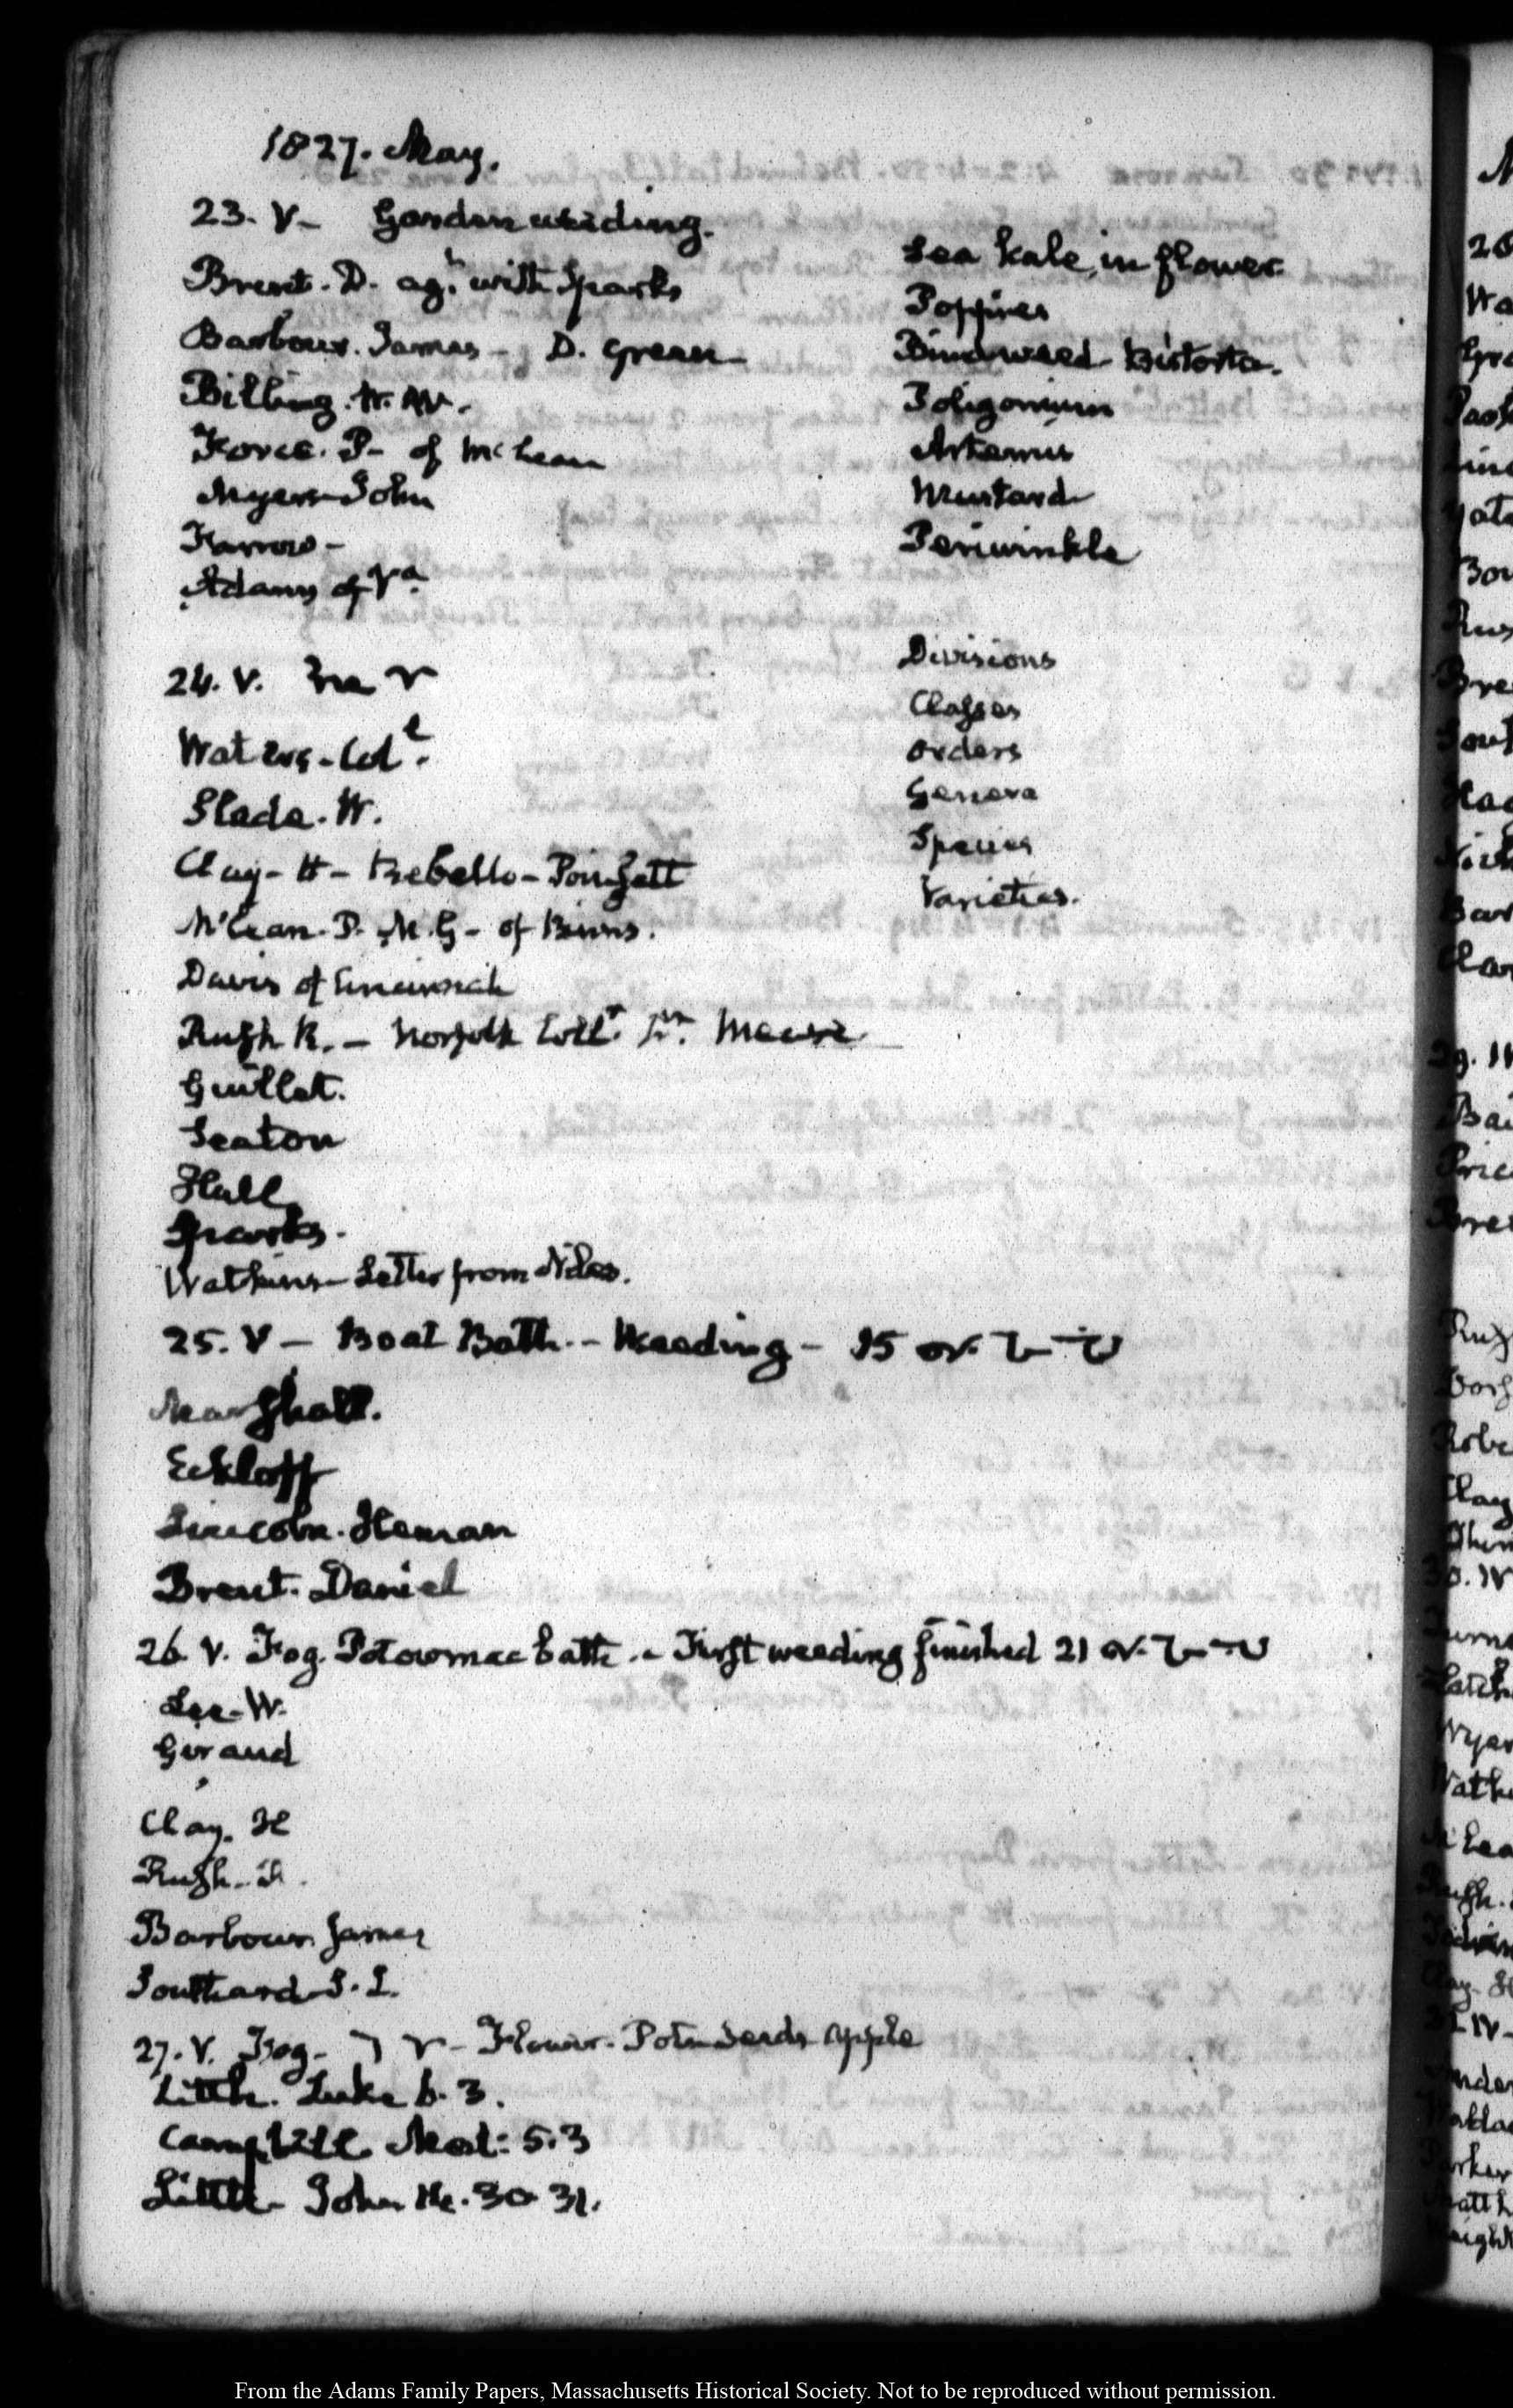 1827. May.
23. V- Garden weeding.
Brent. D. agn. with Sparks
Barbour. James - D. Green
Billing. W. W.
Force. P- of McLean
Myers John
Farrow-
Adams of Va.
Sea kale, in flower
Poppies
Bindweed Bistorta.
Poligonium
Artemis
Mustard
Periwinkle
24. V.
Waters. Col.
Slade. W.
Clay- H- Rebello- Poinsett
McLean. P. M. G- of Binns.
Davis of Cincinnati
Rush R. - Norfolk Collr.
Guillet.
Seaton
Hall
Sparks.
Watkins- Letter from Niles.
Divisions
Classes
Orders
Genera
Species
Varieties.
25. V - Boat Bath - Weeding - 15
Marshall.
Eckloff
Lincoln. Heman
Brent. Daniel
26 V. Fog. Potowmac bath. - First weeding finished 21
Lee- W.
Geraud
Clay. H
Rush. R.
Barbour James
Southard S. L.
27. V. Fog- Apple
Little. Luke 6. 3.
Campbell. Mat: 5.3
Little- John 30 31.
From the Adams Family Papers, Massachusetts Historical Society. Not to be reproduced without permission.